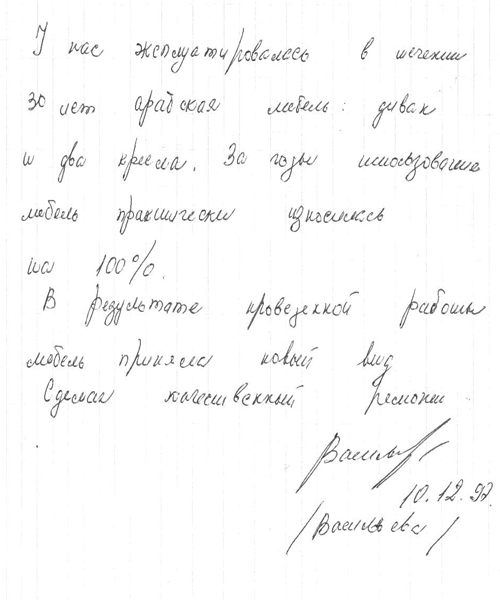 У нас эксплуатировалась в течении
30 лет арабская мебель: диван
и два кресла. За годы использования
мебель практически износилась
на 100%.
В результате проведенной работы
мебель приняла новый вид
Сделан качественный ремонт
10.12.97.
/Васильева/